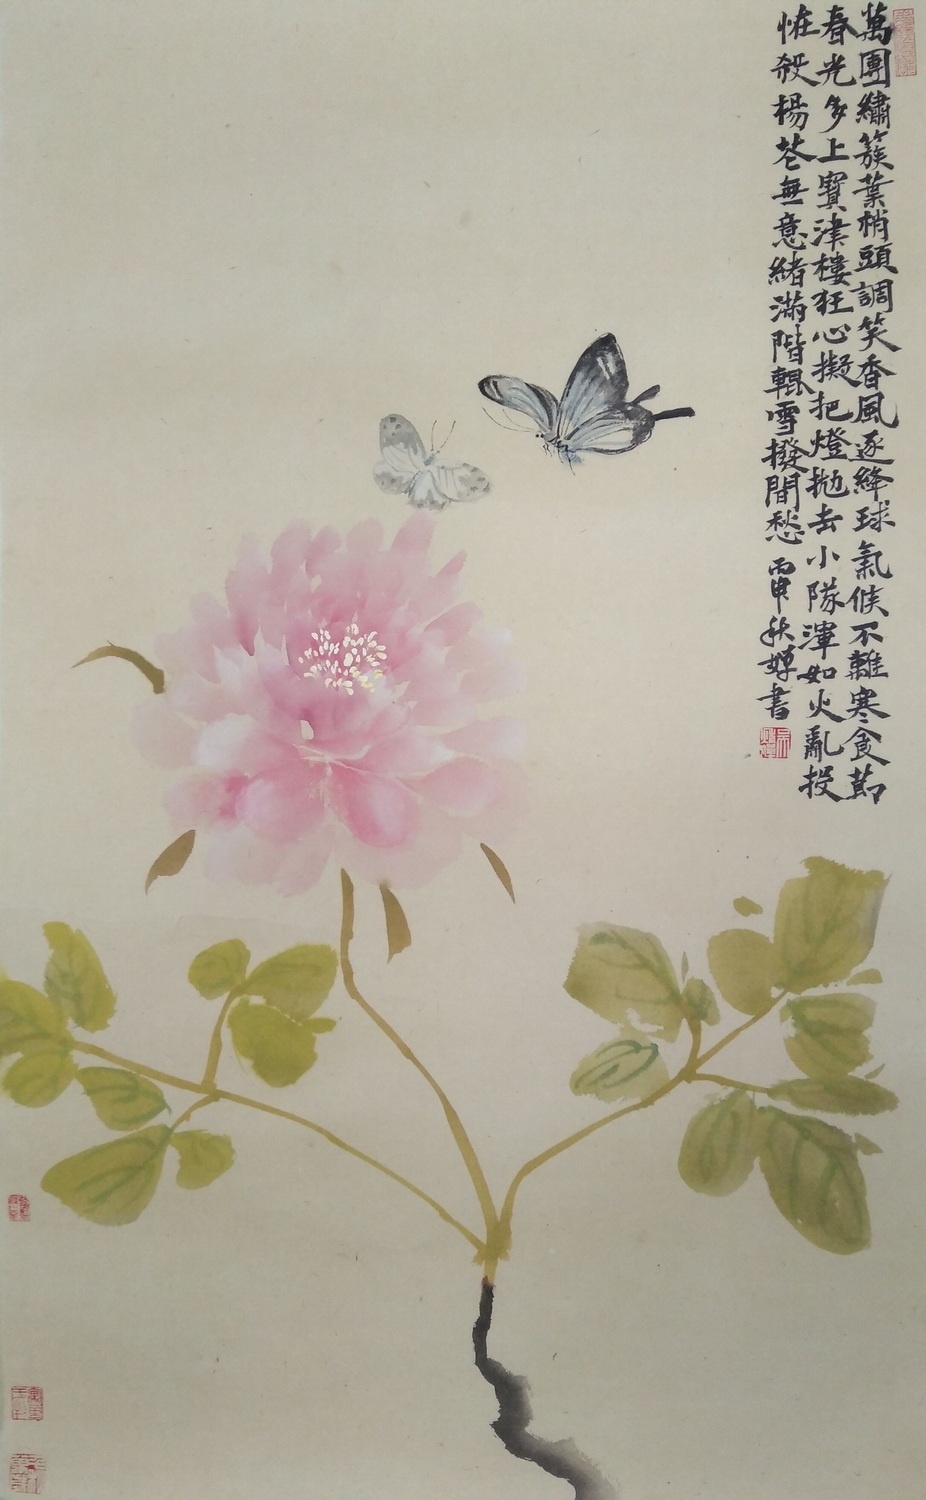 萬團繡簇葉梢頭調笑香風逐絳球氣候不離寒食節
春光多上寶津樓狂心擬把燈拋去小隊渾如火亂投
恠殺楊花無意緒滿階輥雪撥閒愁
丙申秋嬋書